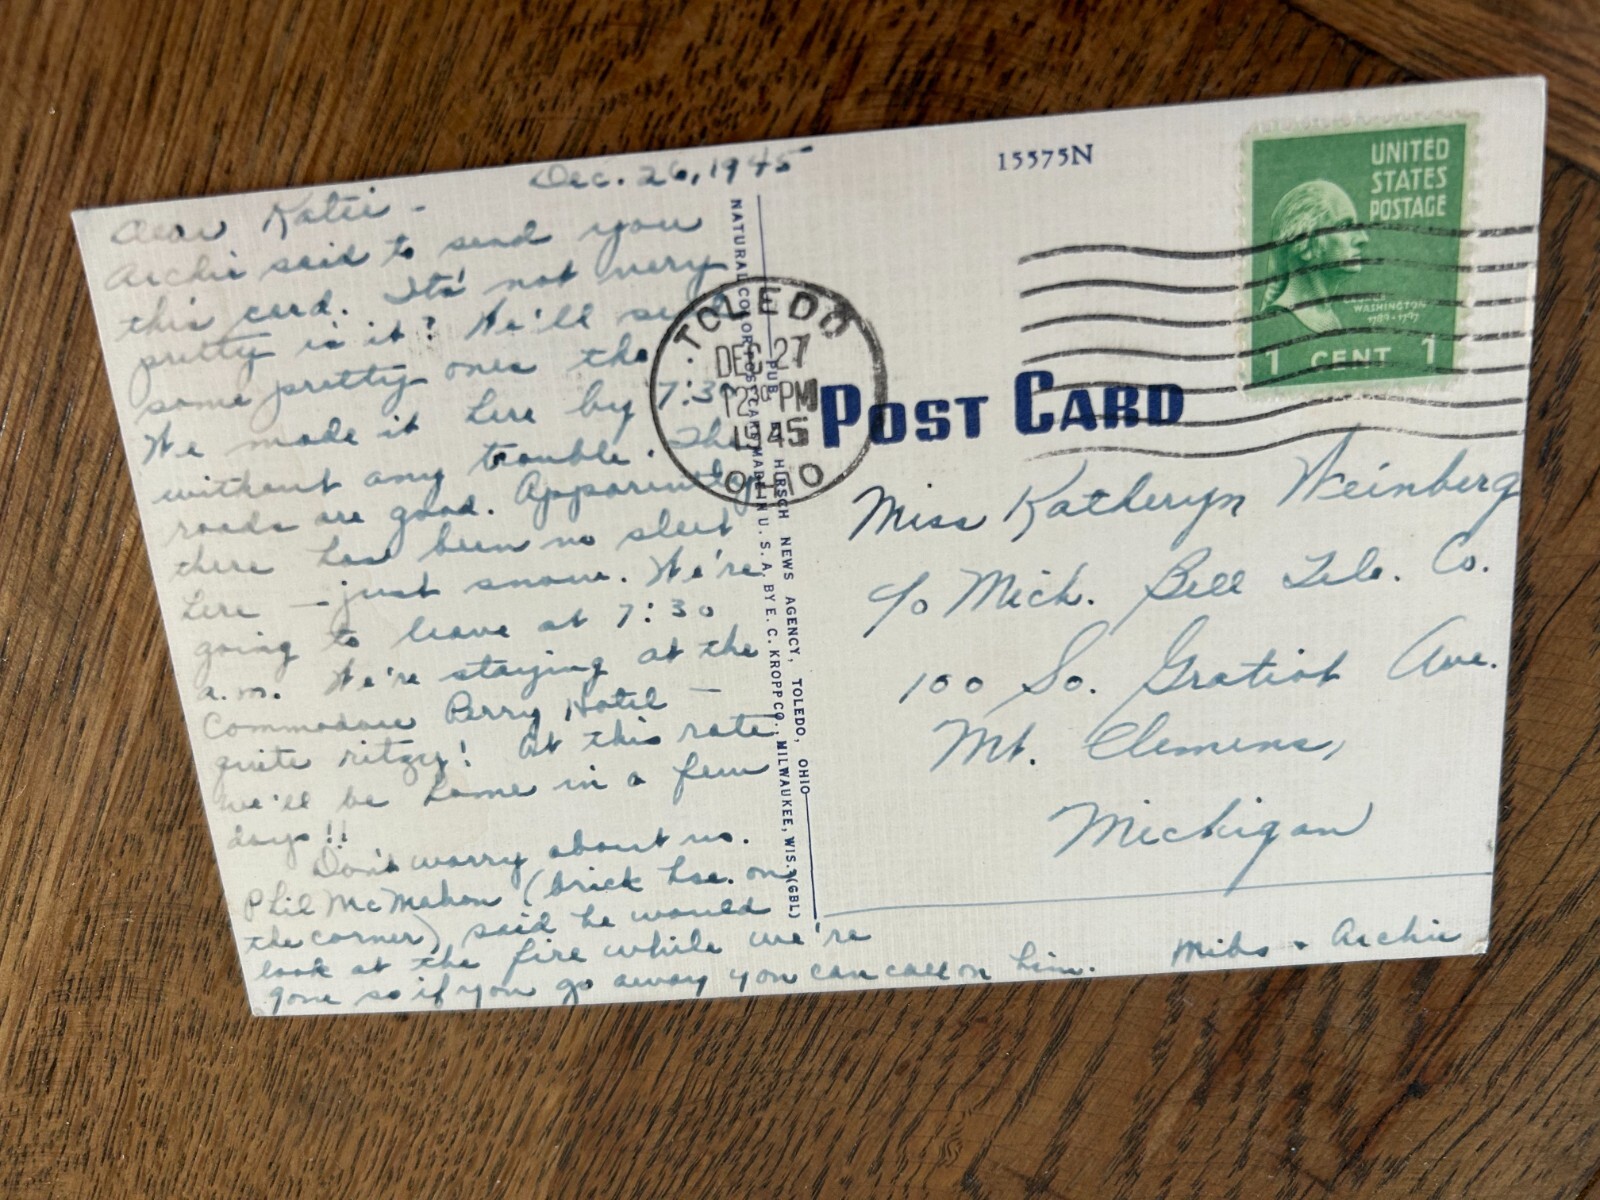 Dec. 26, 1945
Dear Katie -
Archie said to send you
this card. It's not very
pretty is it? We'll send
some pretty ones tho
We made it here by 7:30
without any trouble. The
roads are good. Apparently
there has been no sleet
here - just snow. We're
going to leave at 7:30
a.m. We're staying at the
Commodore Perry Hotel -
quite ritzy! At this rate
we'll be home in a few
days!!
Don't worry about us.
Phil McMahon (brick hse. on
the corner) said he would
look at the fire while we're
gone so if you go away you can call on him.
Mibs + Archie
NATURAL COLOR POST CARD MADE IN U. S. A. BY E. C. KROPP CO., MILWAUKEE, WIS. (GBL)
PUB. BY HIRSCH NEWS AGENCY, TOLEDO, OHIO
15575N
UNITED
STATES
POSTAGE
GEORGE
WASHINGTON
1789-1797
1 CENT 1
TOLEDO
DEC 27
12 30 PM
1945
OHIO
POST CARD
Miss Katheryn Weinberg
c/o Mich. Bell Tele. Co.
100 So. Gratiot Ave.
Mt. Clemens,
Michigan